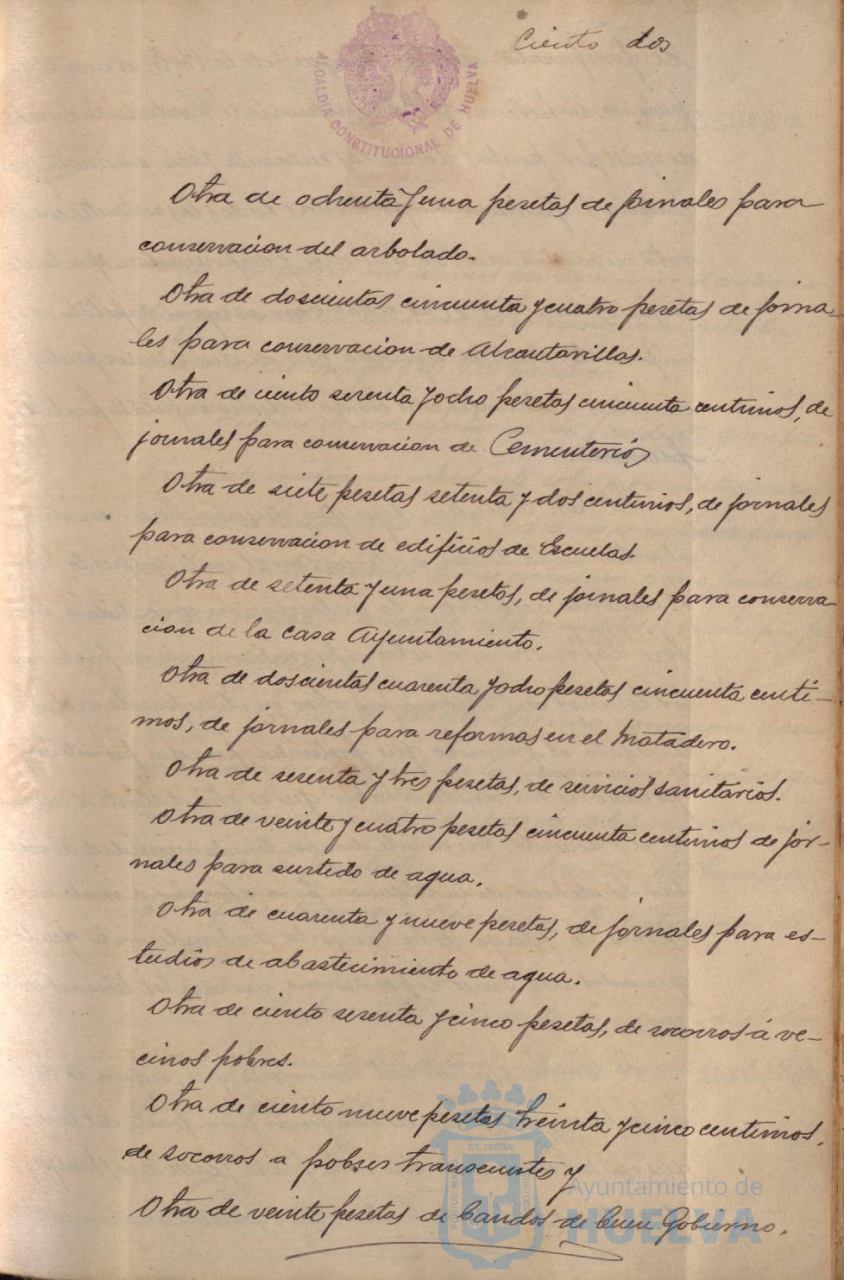 Ciento dos
ALCALDIA CONSTITUCIONAL DE HUELVA
Otra de ochenta y una pesetas de jornales para
conservacion del arbolado.
Otra de doscientas cincuenta y cuatro pesetas de jorna-
les para conservacion de Alcantarillas.
Otra de ciento sesenta y ocho pesetas cincuenta centimos, de
jornales para conservacion de Cementerios
Otra de siete pesetas setenta y dos centimos, de jornales
para conservacion de edificios de Escuelas.
Otra de setenta y una pesetas, de jornales para conserva-
cion de la casa Ayuntamiento.
Otra de doscientas cuarenta y ocho pesetas cincuenta centi-
mos, de jornales para reformas en el Matadero.
Otra de sesenta y tres pesetas, de servicios sanitarios.
Otra de veinte y cuatro pesetas cincuenta centimos de jor-
nales para surtido de agua.
Otra de cuarenta y nueve pesetas, de jornales para es-
tudios de abastecimiento de agua.
Otra de ciento sesenta y cinco pesetas, de socorros á ve-
cinos pobres.
Otra de ciento nueve pesetas treinta y cinco centimos,
de socorros a pobres transeuntes y
Otra de veinte pesetas de bandos de buen Gobierno.
Ayuntamiento de
HUELVA